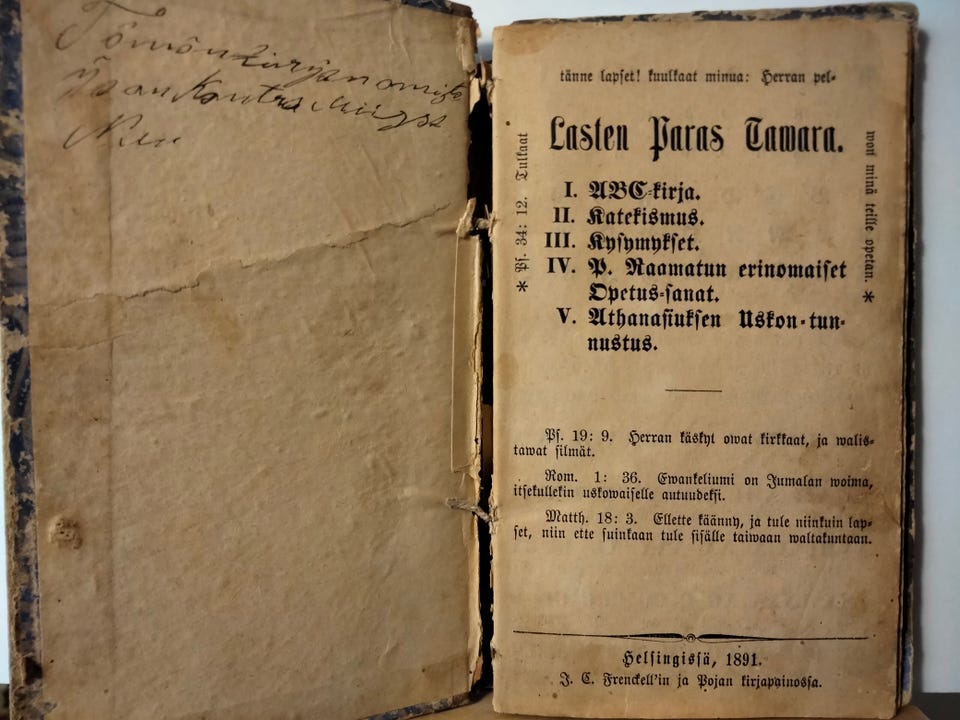 tänne lapset! kuulkaat minua: Herran pel-
* Ps. 34: 12. Tulkaat
won minä teille opetan. *
Lasten Paras Tawara.
I. ABC-kirja.
II. Katekismus.
III. Kysymykset.
IV. P. Raamatun erinomaiset
Opetus-sanat.
V. Athanasiuksen Uskon-tun-
nustus.
Ps. 19: 9. Herran käskyt owat kirkkaat, ja walis-
tawat silmät.
Rom. 1: 36. Ewankeliumi on Jumalan woima,
itsekullekin uskowaiselle autuudeksi.
Matth. 18: 3. Ellette käänny, ja tule niinkuin lap-
set, niin ette suinkaan tule sisälle taiwaan waltakuntaan.
Helsingissä, 1891.
J. C. Frenckell'in ja Pojan kirjapainossa.